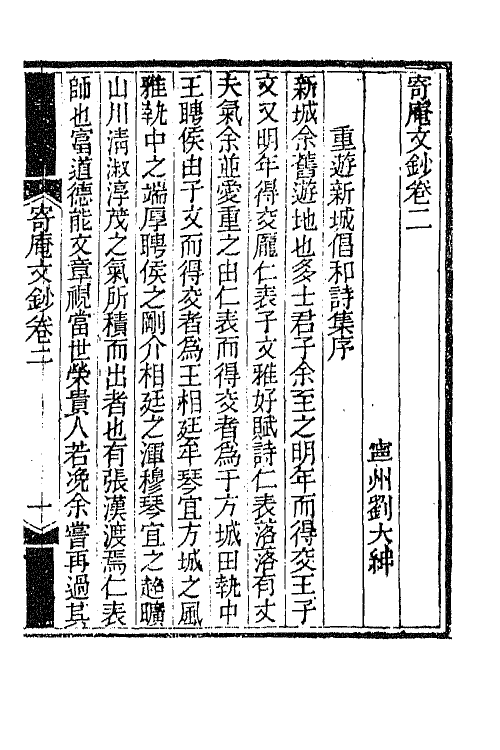 寄庵文鈔卷二
甯州劉大紳
重遊新城倡和詩集序
新城余舊遊地也多士君子余至之明年而得交王子
文又明年得交龐仁表子文雅好賦詩仁表落落有丈
夫氣余並愛重之由仁表而得交者為于方城田執中
王聘侯由子文而得交者為王相廷牟琴宜方城之風
雅執中之端厚聘侯之剛介相廷之渾穆琴宜之超曠
山川淸淑淳茂之氣所積而出者也有張漢渡焉仁表
師也富道德能文章視當世榮貴人若浼余嘗再過其
寄庵文鈔卷二
一